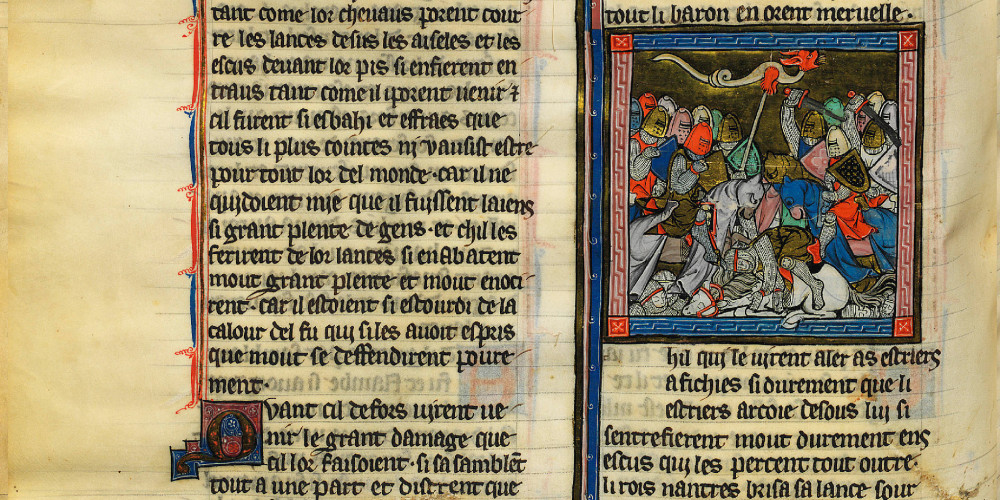 tant come lor cheuaus porent cour
re les lances desus les aiseles et les
escus deuant lor pis si enfierent en
traus tant come il porent uenir ⁊
cil furent si esbahi et effraes que
tous li plus cointes ni vausist estre
pour tout lor del monde · car il ne
quidoient mie que il fuissent laiens
si grant plente de gens · et chil les
ferirent de lor lances si en abatent
mout grant plente et mout enoci
rent · car il estoient si estourdi de la
calour del fu qui si les auoit espris
que mout se deffendirent poure
ment ·
Qvant cil defors uirent ue
nir le grant damage que
cil lor faisoient · si sa samblẽt
tout a une part et distrent que
tout li baron en orent meruelle ·
hil qui le uirent aler as estriers
afichies si durement que li
estriers arcoie desous lui si
sentrefierent mout durement ens
escus qui les percent tout outre ·
li rois nantres brisa sa lance sour